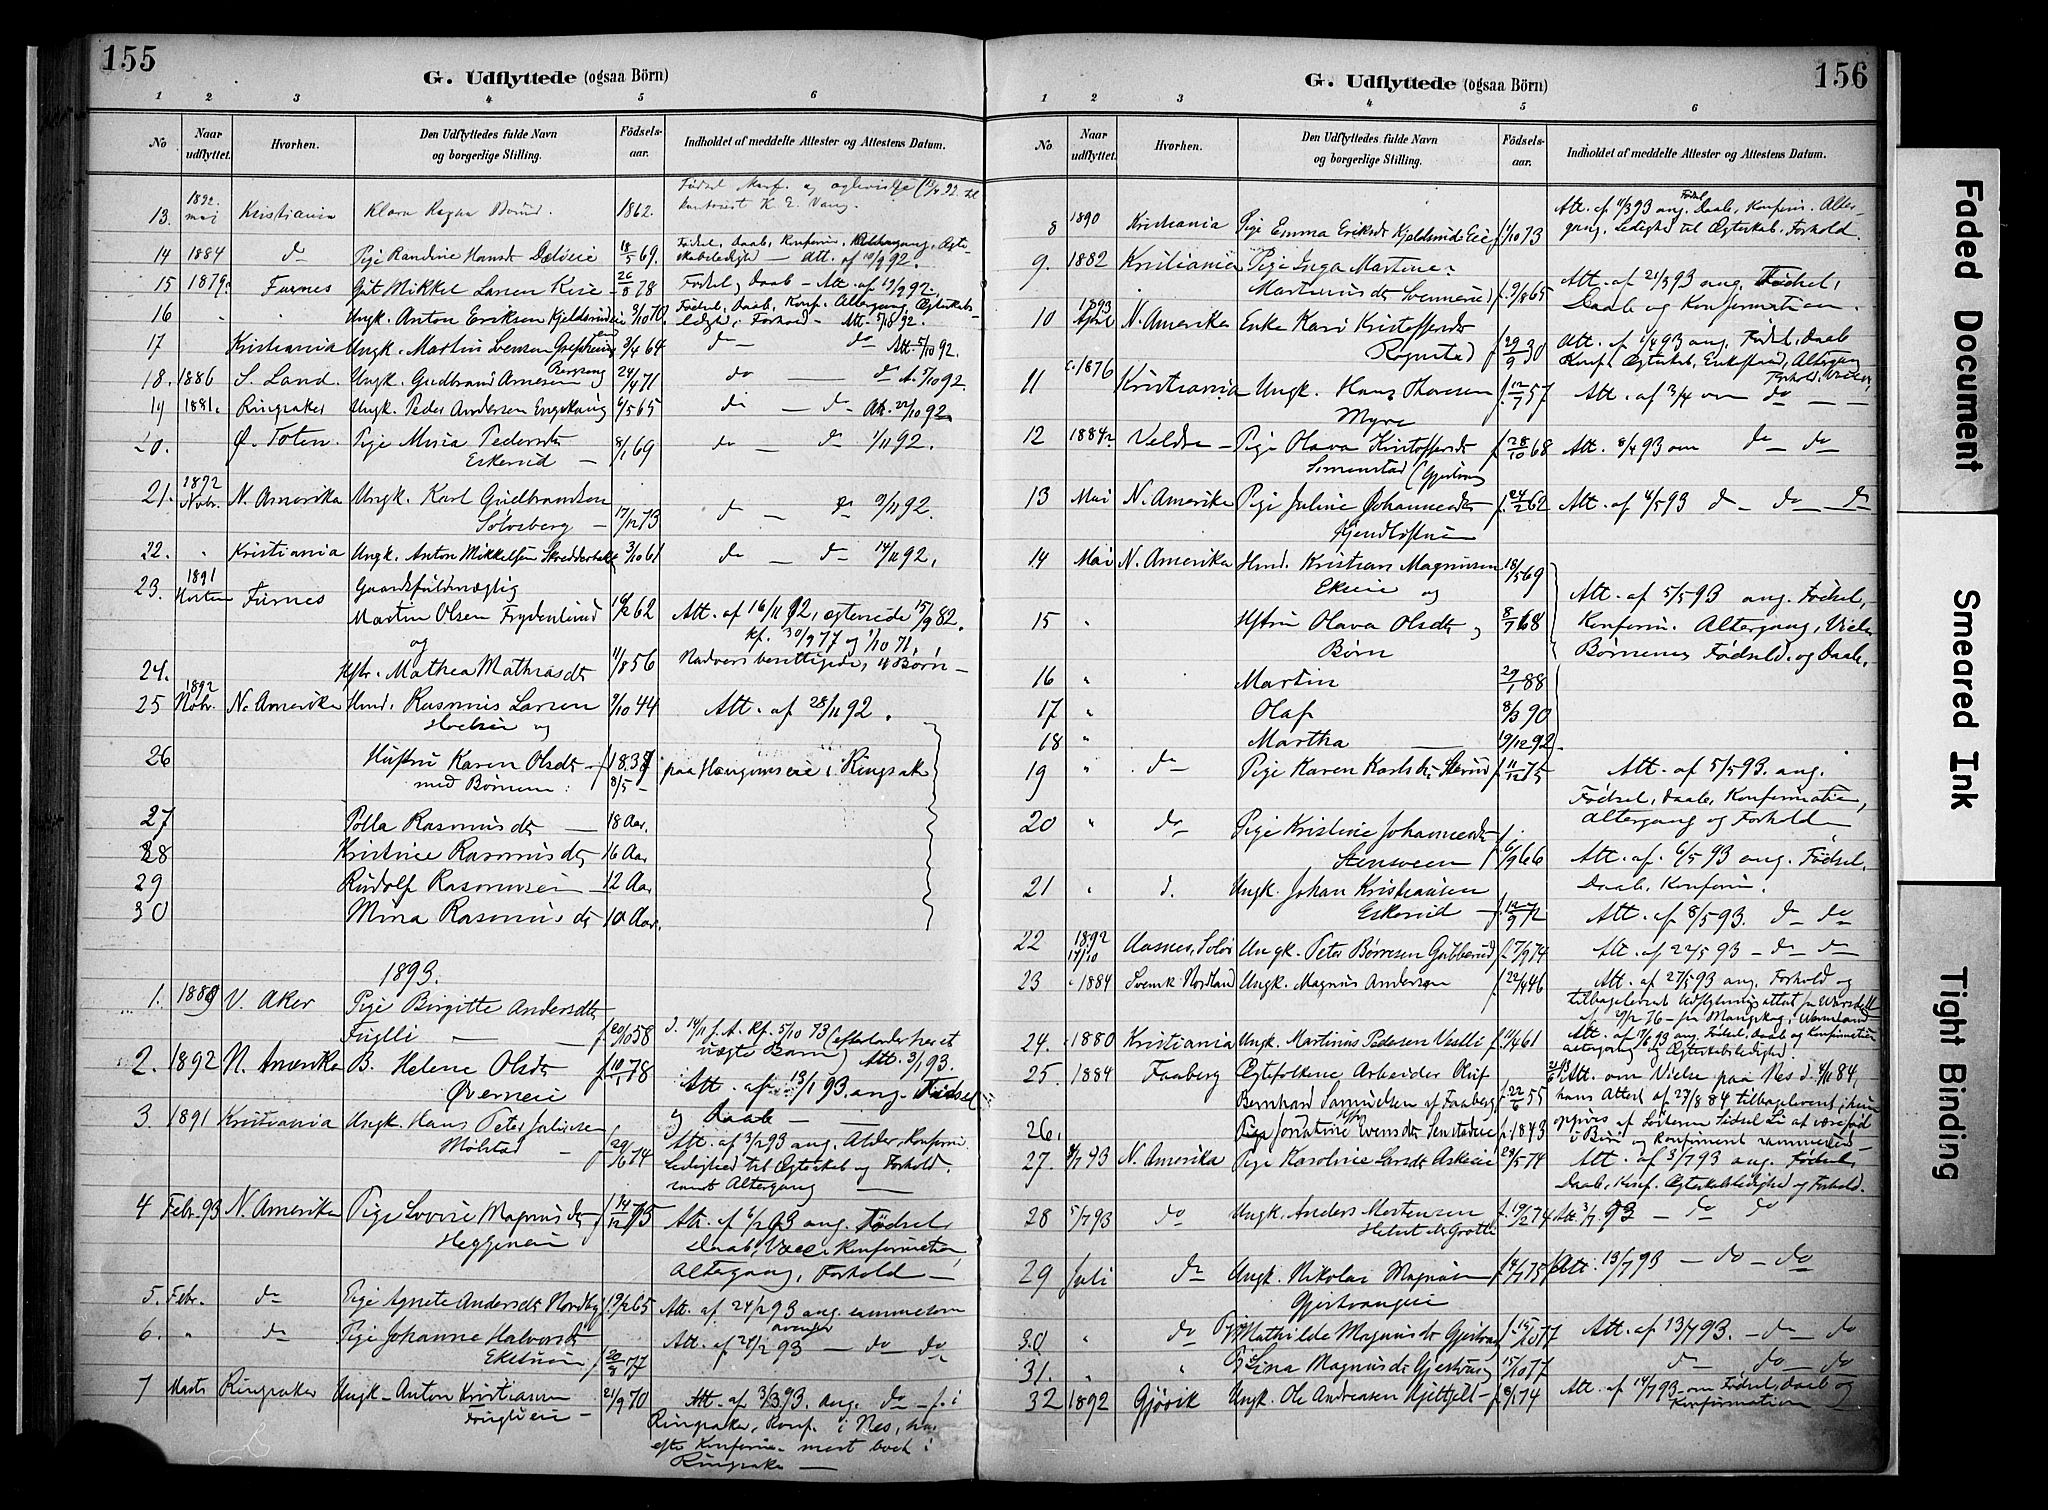 155
G. Udflyttede (ogsaa Börn)
1 2 3 4 5 6
No Naar udflyttet. Hvorhen. Den Udflyttedes fulde Navn og borgerlige Stilling. Födsels-aar. Indholdet af meddelte Attester og Attestens Datum.
1892.
13. maj Kristiania Klara Ragna 1862.
14 1884 do Pige Randine Hansdt 18/5 69. Att. af 10/9 92.
15 1879. Furnes Gut Mikkel Larsen 26/8 78 Fødsel og Daab - Att. af 19/9 92.
16 Ungk. Anton Eriksen 3/10 70 Fødsel, Daab, Konf. Altergang, Ægteskabs-
ledighed, Forhold - Att.
17 Kristiania Ungk. Martin Svensen 3/4 64 do do Att. 5/10 92.
18. 1886 S. Land. Ungk. Gudbrand Arnesen 24/4 71 do do A. 7/10 92.
19 1881. Ringsaker Ungk. Peder Andersen Engehaug 6/5 65 do do Att. 22/10 92.
20. Ø. Toten. Pige Maria Pedersdt
Eskerud 8/1 69 do do 1/11 92.
1892
21. Novbr. N. Amerika Ungk. Karl Gudbrandsen
Solvsberg 17/12 73 do do 9/11 92.
22. " Kristiania Ungk. Anton Mikkelsen 3/10 61 do do 14/11 92.
1891
23. Høsten Furnes Gaardsfuldmægtig
Martin Olsen Frydenlund 62 Att. af 16/11 92, ægteviede 15/9 82.
og kf. 30/9 77 og 1/10 71,
24. Hstr. Mathea Mathiasdt 11/8 56 Nadverberettigede, 4 Børn
1892
25 Nobr. N. Amerika Hmd. Rasmus Larsen
og 9/10 44 Att. af 28/11 92.
26 Hustru Karen Olsdt
med Børnene: 8/5 paa Haugomseie i Ringsak
27 Polla Rasmusdt 18 Aar.
28 Kristine Rasmusdt 16 Aar
29 Rudolf Rasmussen 12 Aar
30 Mina Rasmusdt 10 Aar.
1893.
1. 1889 V. Aker Pige Birgitte Andersdt
Fuglli f. 20/10 58 d. 14/11 f. A. kf. 5/10 73 (efterlader her et
uægte Barn) Att. 3/1 93.
2. 1892 N. Amerika B. Helene Olsdt
Øverneie f. 10/1 78 Att. af 13/1 93. ang. Fødsel
og Daab
3 1891 Kristiania Ungk. Hans Peter Julius
Molstad f. 74 Att. af 3/2 93 ang. Alder, Konform.
Ledighed til Ægteskab og Forhold.
samt Altergang
4 Febr. 93 N. Amerika Pige Lovise Magnusdt
Heggeneie f. 14/12 75 Att. af 6/2 93 ang. Fødsel,
Daab, Vacc. Konfirmation,
Altergang, Forhold
5. Febr. do Pige Agnete Andersdt Nordby f. 9/2 65 Att. af 24/2 93 ang. sammesom
ovenfor
6. " do Pige Johanne Halvorsdt
f. 20/8 77 Att. af 24/2 93 do do
7 Marts Ringsaker Ungk. Anton Kristiansen
Fuglieie 21/9 70 Att. af 3/3 93. ang. do - f. i
Ringsaker, Konf. i Nes, har
efter Konform. mest boet i
Ringsaker
156
G. Udflyttede (ogsaa Börn)
1 2 3 4 5 6
No Naar udflyttet. Hvorhen. Den Udflyttedes fulde Navn og borgerlige Stilling. Födsels-aar. Indholdet af meddelte Attester og Attestens Datum.
8 1890 Kristiania Pige Emma Eriksdt Kjeldsrud Eie f. 1/10 73 Att. af 11/3 93 ang. Fødsel Daab, Konform. Alter-
gang, Ledighed til Ægteskab. Forhold.
9. 1882 Kristiania Pige Inga Martine
Martinusdt f. 9/8 65 Att. af 21/3 93 ang. Fødsel,
Daab og Konfirmation.
1893
10 April N. Amerika Enke Kari Kristoffersdt
Rognstad f. 29/9 30 Att. af 1/4 93 ang. Fødsel, Daab
Konf. Ægteskab, Enkestand, Altergang
Forhold,
11 c. 1876 Kristiania Ungk. Hans Thoresen
Myre f. 12/7 57 Att. af 3/4 om do
12 1884 Veldre Pige Olava Kristoffersdt
Simenstad (Gjestvang f. 28/10 68 Att. 8/4 93 om do do
13 Mai N. Amerika Pige Juline Johannesdt
f. 24/2 62 Att. af 4/5 93 do do do
14 Mai N. Amerika Hmd. Kristian Magnussen
Ekeie og 18/5 69
Att. af 5/5 93 ang. Fødsel,
15 " Hstru Olava Olsdt og 8/7 68 Konform. Altergang, Vielse
Børn Børnenes Fødsel og Daab.
16 " Martin 29/1 88
17 " Olaf 8/3 90
18 " Martha 19/12 92.
19 " do Pige Karen Karlsdt f. 11/12 75 Att. af 5/5 93. ang.
Fødsel, Daab, Konfirmation,
Altergang og Forhold
20 " do Pige Kristine Johannesdt
Stensveen f. 6/9 66 Att. af. 6/5 93 ang. Fødsel,
Daab, Konform.
21 " d. Ungk. Johan Kristiansen
Eskerud f. 12/9 72 Att. af 8/5 93. do do
22 1892 17/10 Aasnes, Solør Ungk. Peter Børresen Gubberud f. 27/9 74 Att. af 22/5 93 - do do
23 1884 Svensk Nordland Ungk. Magnus Andersen f. 22/4 46 Att. af 27/5 93 ang. Forhold og
tilbageleveret Udflytningsattest fra
af 9/2 76 - fra Mangskog, Wermland
24. 1880 Kristiania Ungk. Martinus Pedersen Veslli f. 61 Att. af 17/6 93 ang. Fødsel, Daab og Konfirmation
altergang og Ægteskabsledighed.
25. 1884 Faaberg Ægtefolkene Arbeider Oluf
Bernhard Samuelsen af Faaberg f. 22/6 55 Att. om Vielse paa Nes d. 4/11 84,
hans Attest af 27/8 84 tilbageleveret, hun
26. Jonatine Evensdt f. 1843 opgives af Søsteren Sidsel Li at være fød
i Biri og konfirmeret sammesteds
27. 93 N. Amerika Pige Karoline Larsdt 29/5 74 Att. af 3/7 93 ang. Fødsel,
Daab, Konf. Ægteskabsledighed og Forhold.
28 5/7 93 do Ungk. Anders Mortensen
f. 19/2 74 Att. 3/7 93 - do do
29 Juli do Ungk. Nikolai Magnusen
Gjestvangeie f. 75 Att. 13/7 93 - do - do
30 " do Pige Mathilde Magnusdt Gjestvang f. 15/10 77 Att. af 13/7 93. - do - do
31. " P. Lina Magnusdt Gjestvang 15/10 77 do do do
32 1892 Gjövik Ungk. Ole Andreasen f. 8/1 74 Att. af 14/7 93 om Fødsel, Daab og
Konfirmation
Faded Document
Smeared Ink
Tight Binding